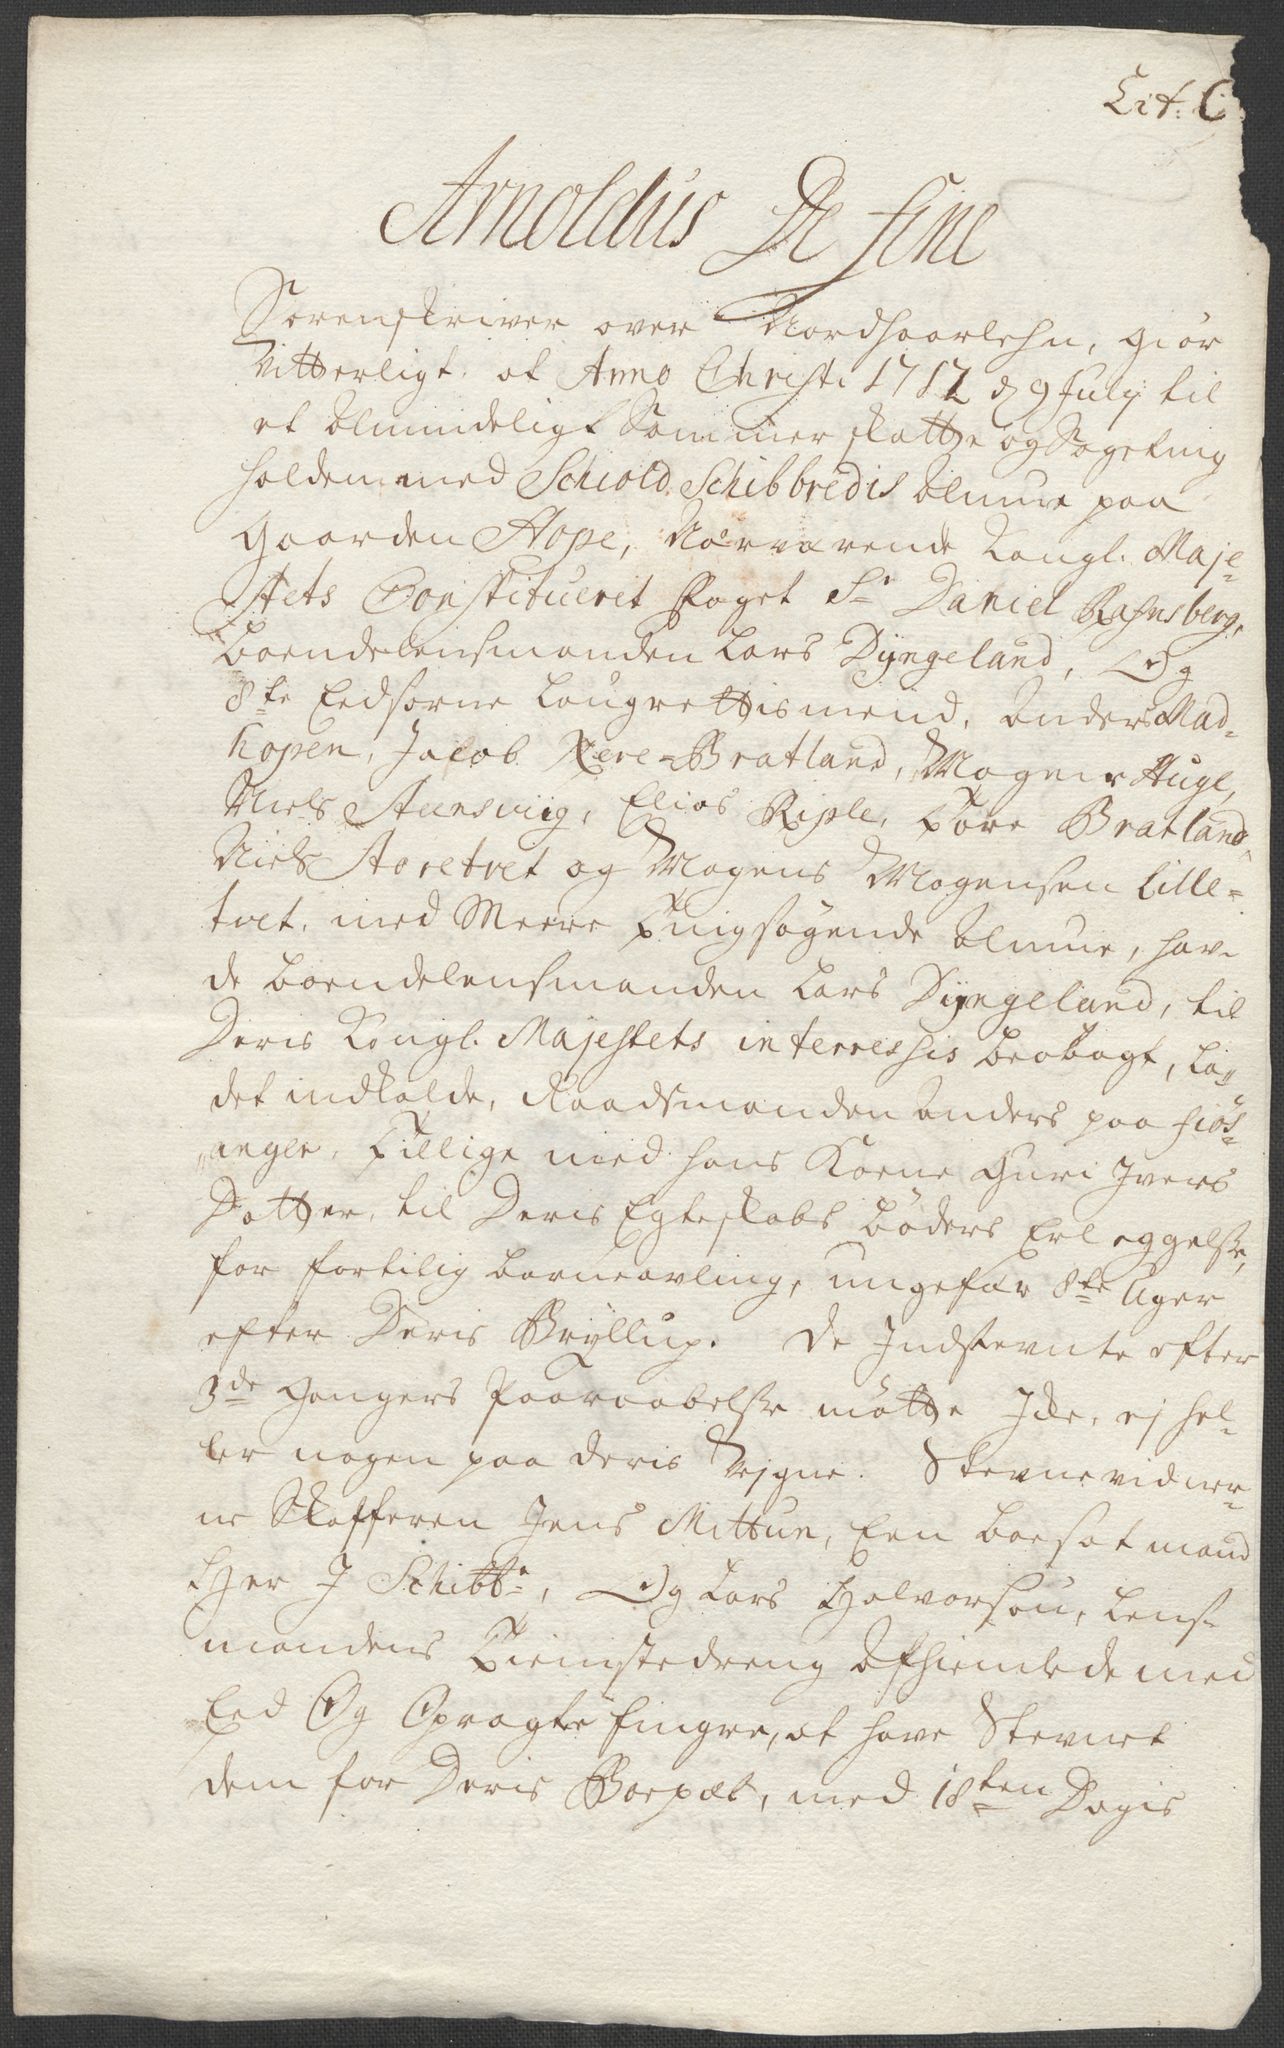 Lit: C
Arnoldus De Fine
Sorenskriver over Nordhoorlehn, giör
Vitterligt. at Anno Christi 1712 d 9 July til
et Almindeligt Sommer skatte og Sageting
holden med Schiold Schibbredis Almue paa
gaarden Hope, Nærværende Kongl. Maje-
stets Constitueret Foget Sr Daniel Rafnsberg,
Bondelensmanden Lars Dyngeland, Og
8te Eedsorne Laugrettismend, Anders Mad-
hopen, Jacob Nere-Bratland, Mogens Huge,
Niels Steensviig, Elias Riple, Tore Bratland,
Niels Aaretvet og Mogens Mogensen Lille-
tvet. med Meere Tingsögende Almue, hav-
de bondelensmanden Lars Dyngeland, til
Deris Kongl. Majestets interresses beobagt, la-
det indkalde, Raadsmanden Anders paa Fiös-
anger, Tillige med hans Kone Guri Ivers
Datter, til Deris Egteskabs böders Erleggelse,
for fortilig barneavling, ungefær 8te Uger
efter Deris Bryllup. De Indstevnte efter
3de Gangers Paaraabelse mötte Icke, ej hel-
ler nogen paa deris Vegne. Stevnevidner-
ne Skafferen Jens Mittun, Een boesat mand
her I Schibbr, Og Lars Halvorsen, Lens-
mandens Tienistedreng Afhiemlede med
Eed Og Opragte fingre, at have Stevnet
dem for Deris Boepæl, med 18ten Dagis